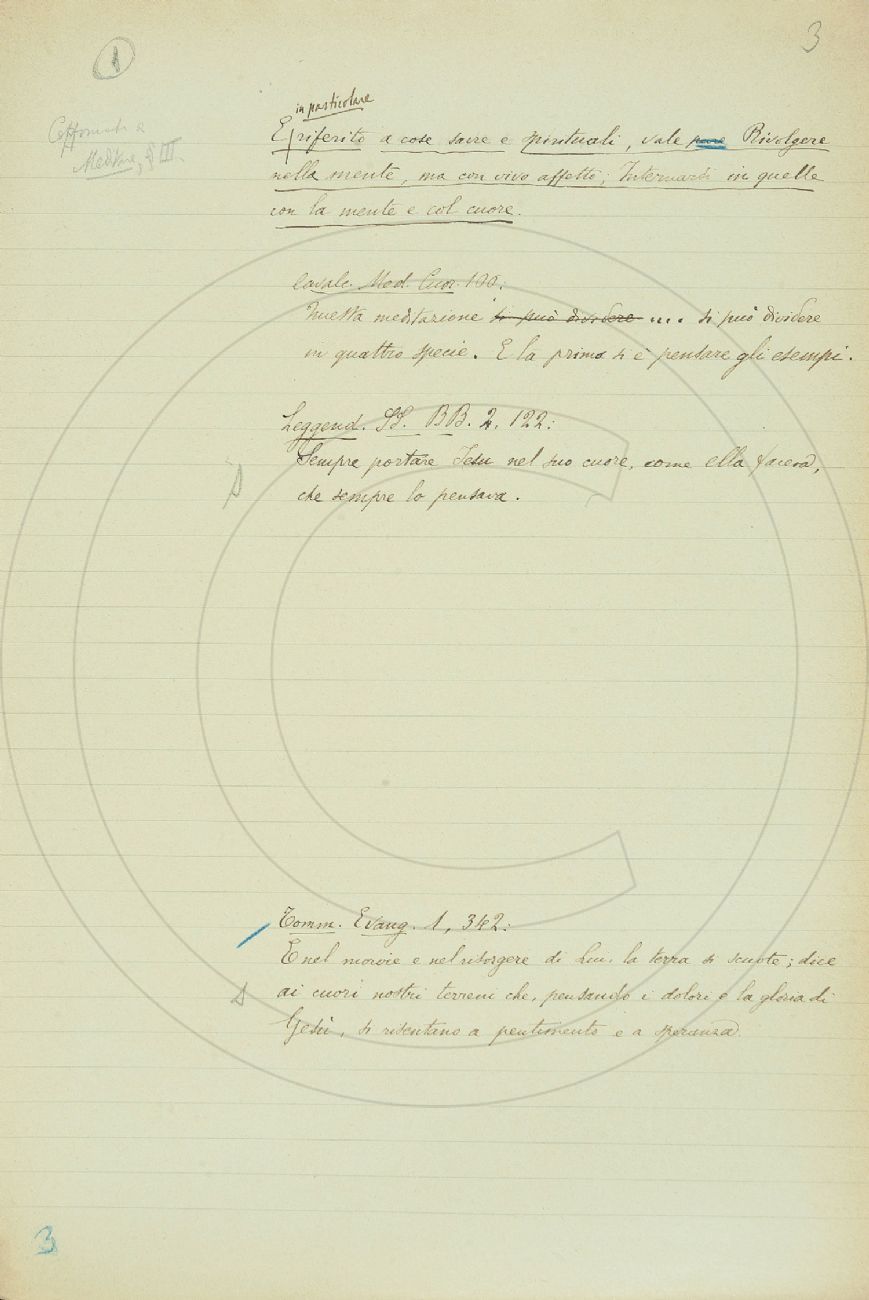 3
1
Conforme a
Meditare, § III.
in particolare
E riferito a cose sacre e spirituali, vale pure Rivolgere
nella mente, ma con vivo affetto; Internarsi in quelle
con la mente e col cuore.
Cavalc. Med. Cuor. 100:
Questa meditazione si può dividere ... si può dividere
in quattro specie. E la prima si è pensare gli esempi.
Leggend. SS. BB. 2. 122:
Sempre portare Jesu nel suo cuore, come ella faceva,
che sempre lo pensava.
Tomm. Evang. 1, 342:
E nel morire e nel risorgere di Lui, la terra si scuote; dice
ai cuori nostri terreni che, pensando i dolori e la gloria di
Gesù, si risentano a pentimento e a speranza
3